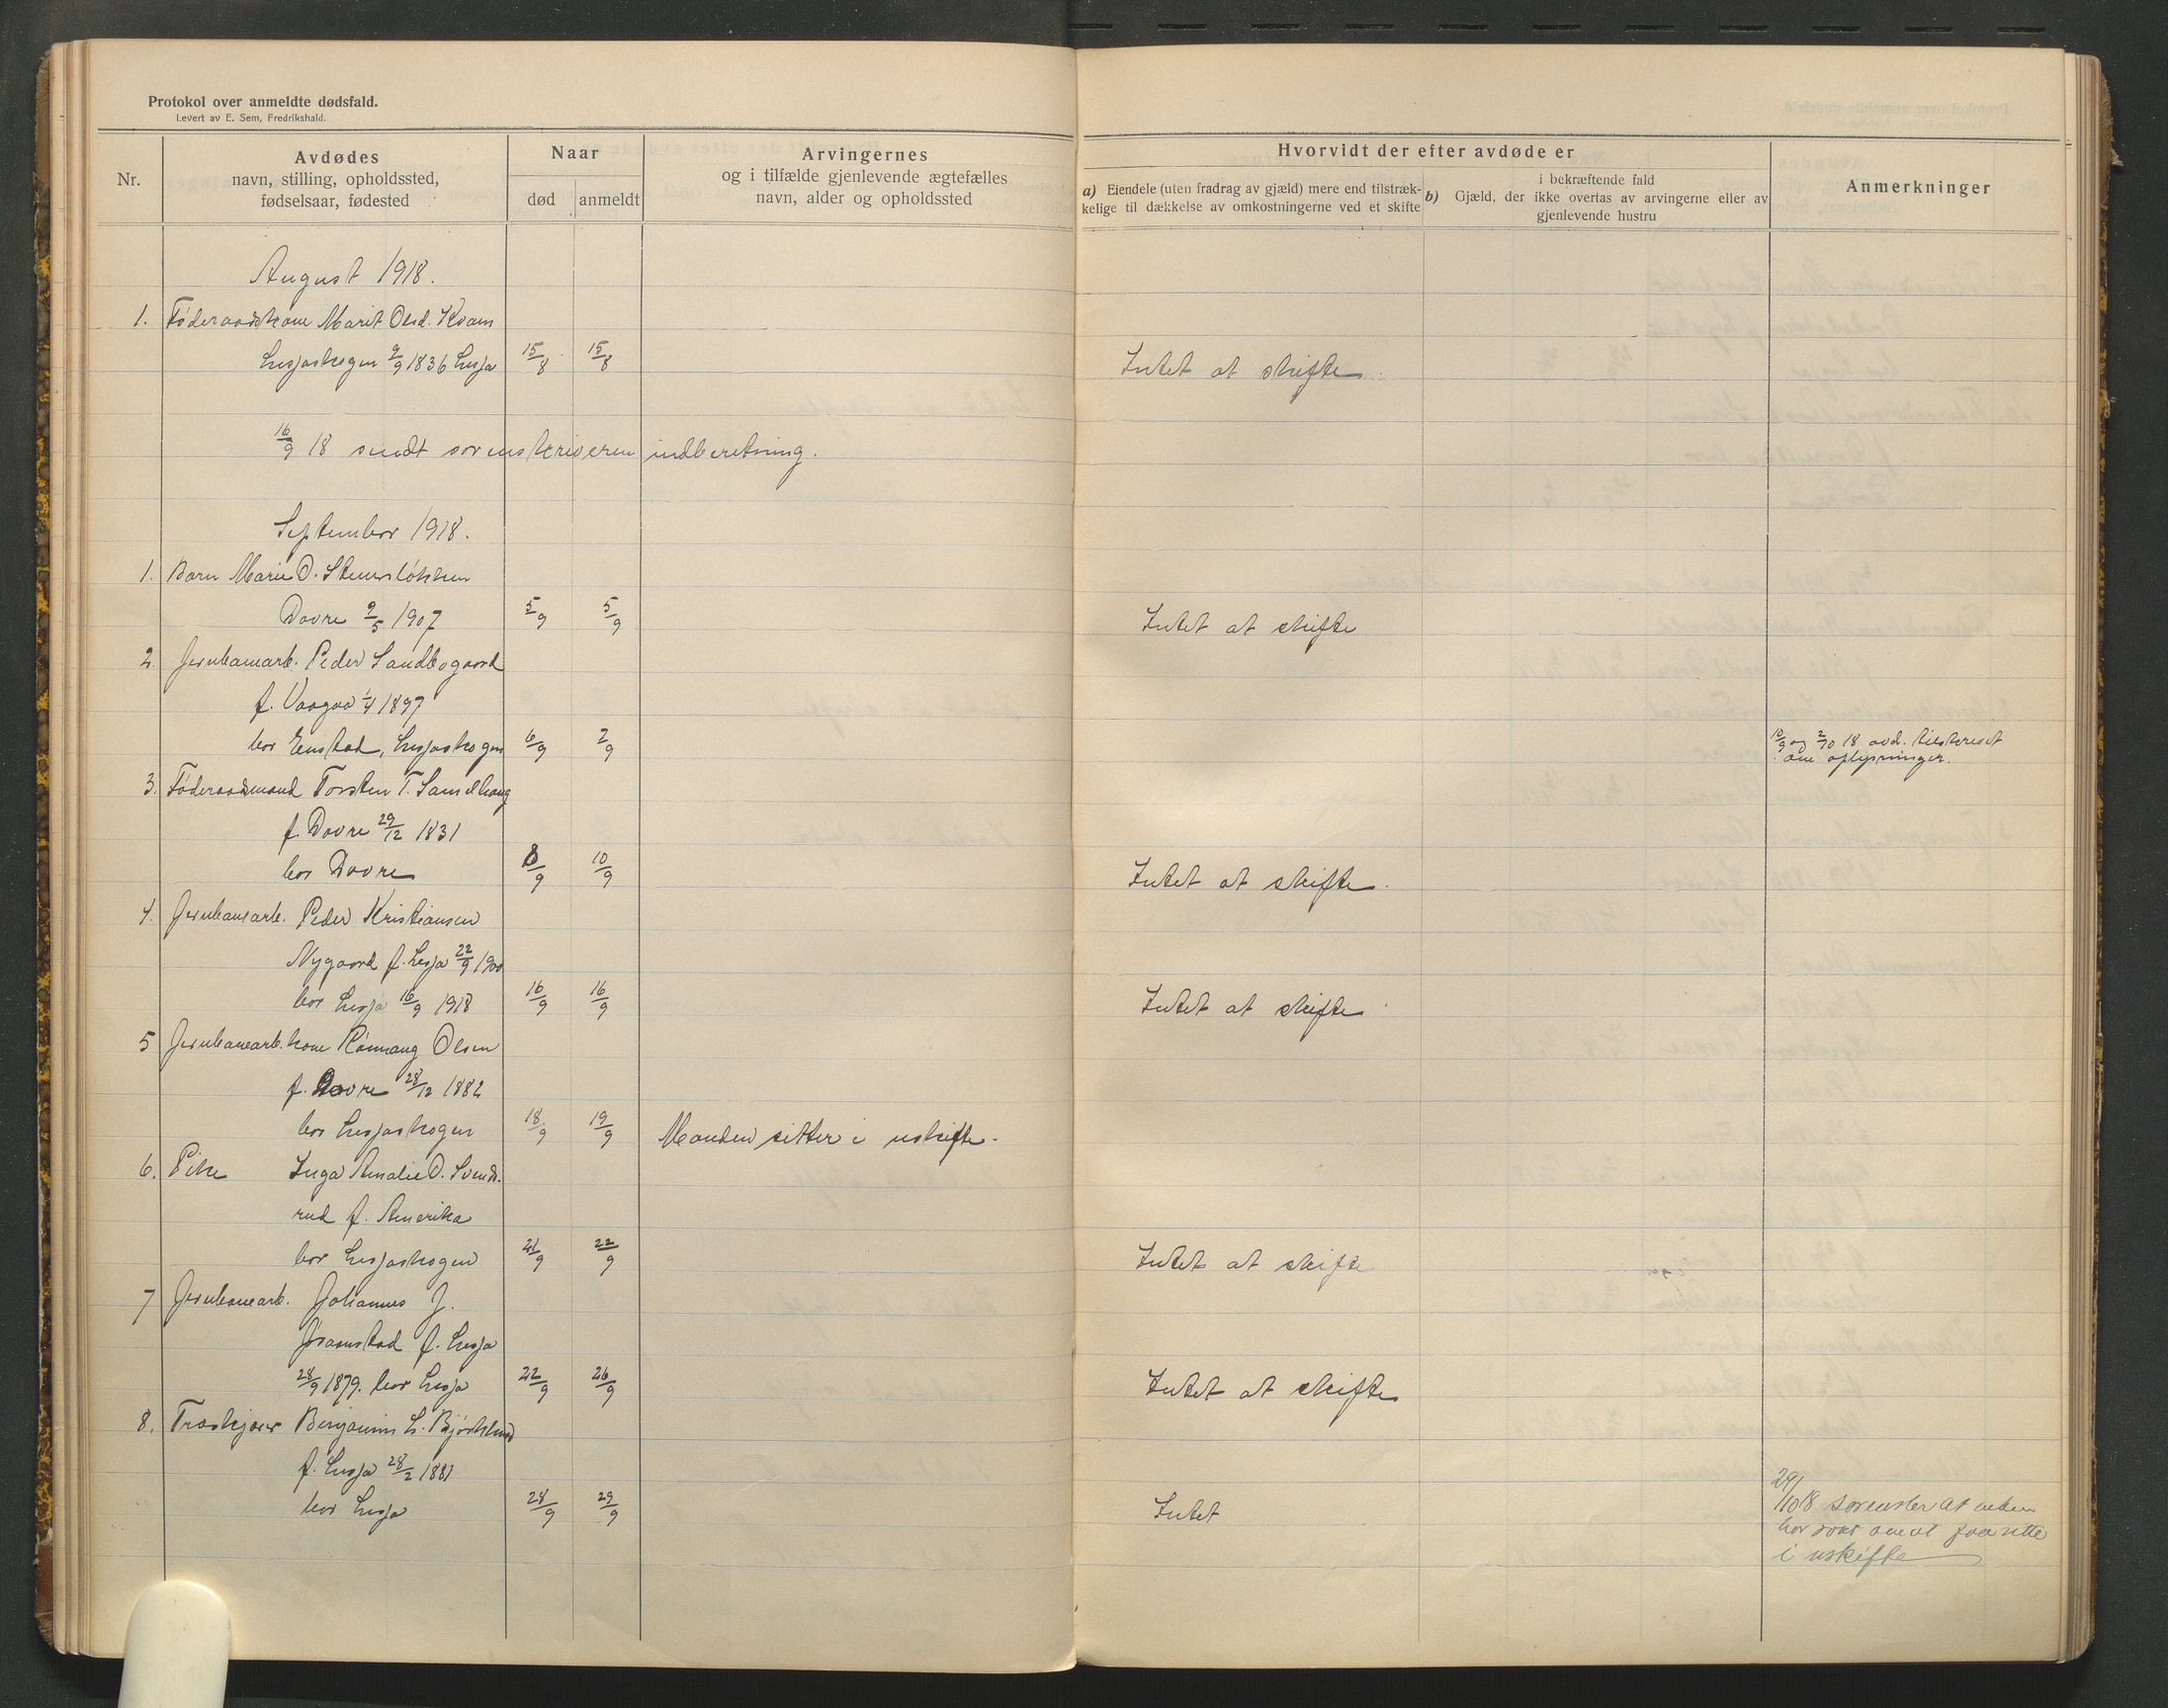 Protokol over anmeldte dødsfald.
Levert av E. Sem, Fredrikshald.
Nr.
Avdødes
navn, stilling, opholdssted,
fødselsaar, fødested
Naar
død
anmeldt
Arvingernes
og i tilfælde gjenlevende ægtefælles
navn, alder og opholdssted
Hvorvidt der efter avdøde er
a) Eiendele (uten fradrag av gjæld) mere end tilstræk-
kelige til dækkelse av omkostningerne ved et skifte
b) Gjæld, der
i bekræftende fald
ikke overtas av arvingerne eller av
gjenlevende hustru
Anmerkninger
August 1918.
1. Føderaadskone Marit Olsd. Kvam
Lesjaskogen 9/9 1836 Lesja 15/8 15/8 Intet at skifte.
16/9 18 sendt sorenskriveren indberetning.
September 1918.
1. Barn Marie O.
Dovre 9/5 1907 5/9 5/9 Intet at skifte
2. Jernbanearb. Peder Sandbogaard
f. Vaagaa 1/4 1897
bor Enstad, Lesjaskogen 6/9 7/9 10/9 og 2/10 18 avd. tilskrevet
om oplysninger.
3. Føderaadsmand Torsten T.
f. Dovre 29/12 1831
bor Dovre 8/9 10/9 Intet at skifte.
4. Jernbanearb. Peder Kristiansen
Nygaard f. Lesja 22/9 1900
bor Lesja 16/9 1918 16/9 16/9 Intet at skifte
5 Jernbanearb. kone Rønnaug Olsen
f. Dovre 28/12 1882
bor Lesjaskogen 18/9 19/9 Manden sitter i uskifte.
6. Pike Inga Amalie O. Svends-
rud f. Amerika
bor Lesjaskogen 21/9 22/9 Intet at skifte
7 Jernbanearb. Johannes J.
Joramstad f. Lesja
28/9 1879. bor Lesja 22/9 26/9 Intet at skifte
8. Træskjærer Benjamin L. Bjørklund
f. Lesja 28/2 1881
bor Lesja 28/9 29/9 Intet
29/10 18 at enken
har søkt om at faa sitte
i uskifte